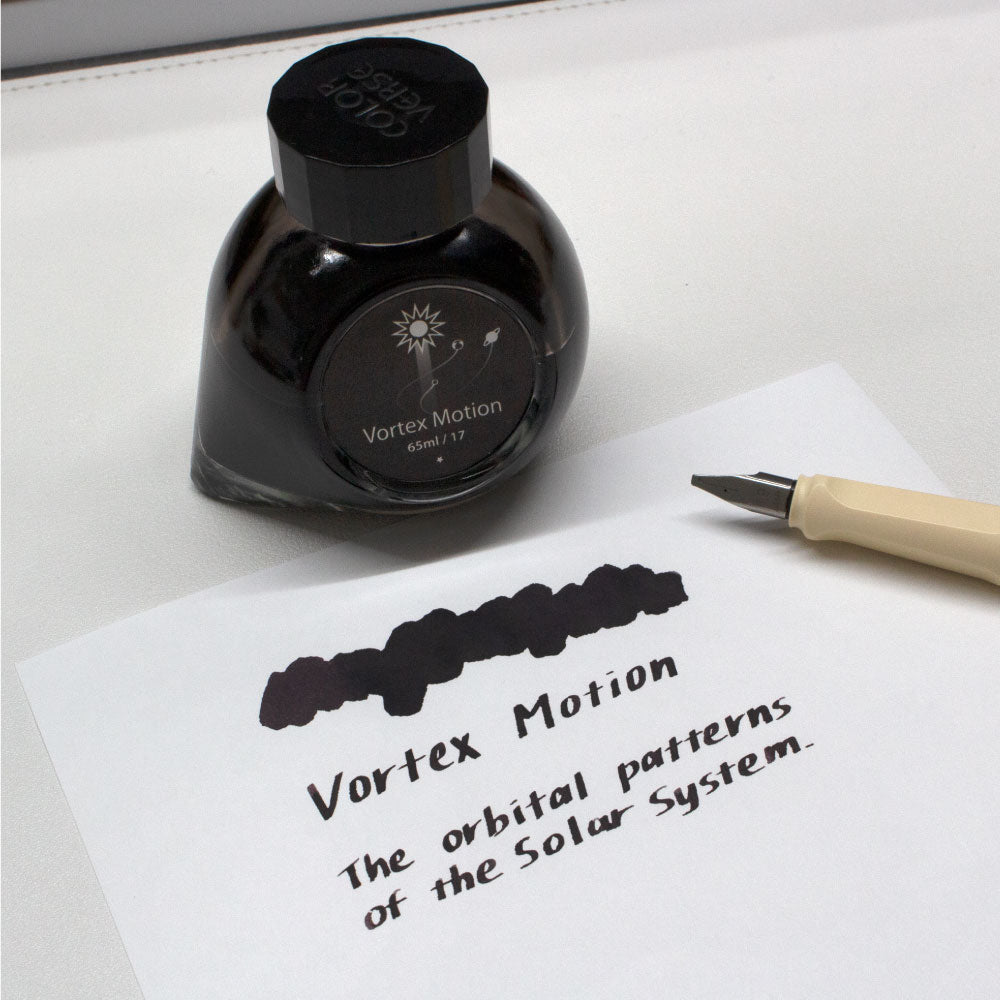 COLOR
VERSE
Vortex Motion
65ml / 17
Vortex Motion
The orbital patterns
of the Solar System.